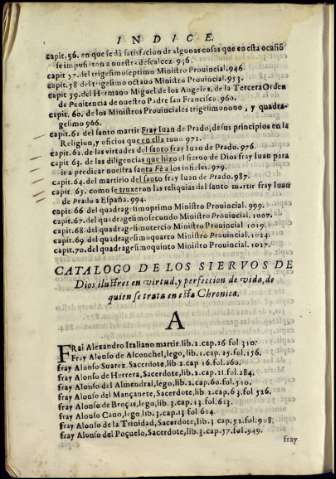 INDICE.
capit. 56. en que se dà satisfacion de algunas cosas que en esta ocasiõ
se impusieron a nuestra descalcez. 936.
capit 57. del trigesimoseptimo Ministro Provincial. 946.
capit 58 del trigesimo octauo Ministro Provincial. 953.
capit 59. del Hermano Miguel de los Angeles, de la Tercera Orden
de Penitencia de nuestro Padre san Francisco. 960.
capit. 60. de los Ministros Provinciales trigesimonono, y quadra-
gesimo 966.
capit. 61 del santo martir Fray Iuan de Prado, de sus principios en la
Religion, y oficios que en ella tuuo. 971.
capit. 62. de las virtudes del santo fray Iuan de Prado. 976.
capit. 63. de las diligencias que hizo el sieruo de Dios fray Iuan para
ir a predicar nuestra santa Fè a los infieles. 979.
capit. 64. del martirio del santo fray Iuan de Prado. 987.
capit. 65. como se truxeron las reliquias del santo martir fray Iuan
de Prado a España. 994.
capit 66 del quadragesimoprimo Ministro Provincial. 999.
capit. 67. del quadragesimosecundo Ministro Provincial. 1007.
capit. 68. del quadragesimotercio Ministro Provincial 1019.
capit. 69 del quadragesimoquarto Ministro Provincial. 1011.
capit. 70. del quadragesimoquinto Ministro Provincial. 1017.
CATALOGO DE LOS SIERVOS DE
Dios ilustres en virtud, y perfeccion de vida, de
quien se trata en esta Chronica.
A
FRai Alexandro Italiano martir. lib. 2. cap. 26 fol 310.
Fray Alonso de Alconchel, lego, lib. 1. cap. 25. fol. 156.
fray Alonso Suarez Sacerdote, lib. 2. cap 16. fol. 262.
fray Alonso de Herrera, Sacerdote, lib. 2. cap. 21 fol. 284.
fray Alonso del Almendral, lego, lib. 2. cap. 60. fol. 510.
fray Alonso del Mançanete, Sacerdote, lib. 2. cap. 63. fol 526.
fray Alonso de Broças, lego, lib. 3. cap. 13. fol. 613.
fray Alonso Cano, lego, lib. 3. cap 13 fol 614.
fray Alonso de la Trinidad, Sacerdote, lib. 3 cap. 52. fol. 908.
fray Alonso del Poçuelo, Sacerdote, lib. 3. cap. 57. fol. 949.
fray